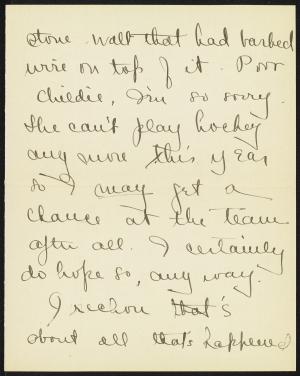 stone wall that had barbed
wire on top of it. Poor
Childie, I'm so sorry.
She can't play hockey
any more this year
so I may get a
chance at the team
after all. I certainly
do hope so, any way.
I reckon that's
about all that's happened